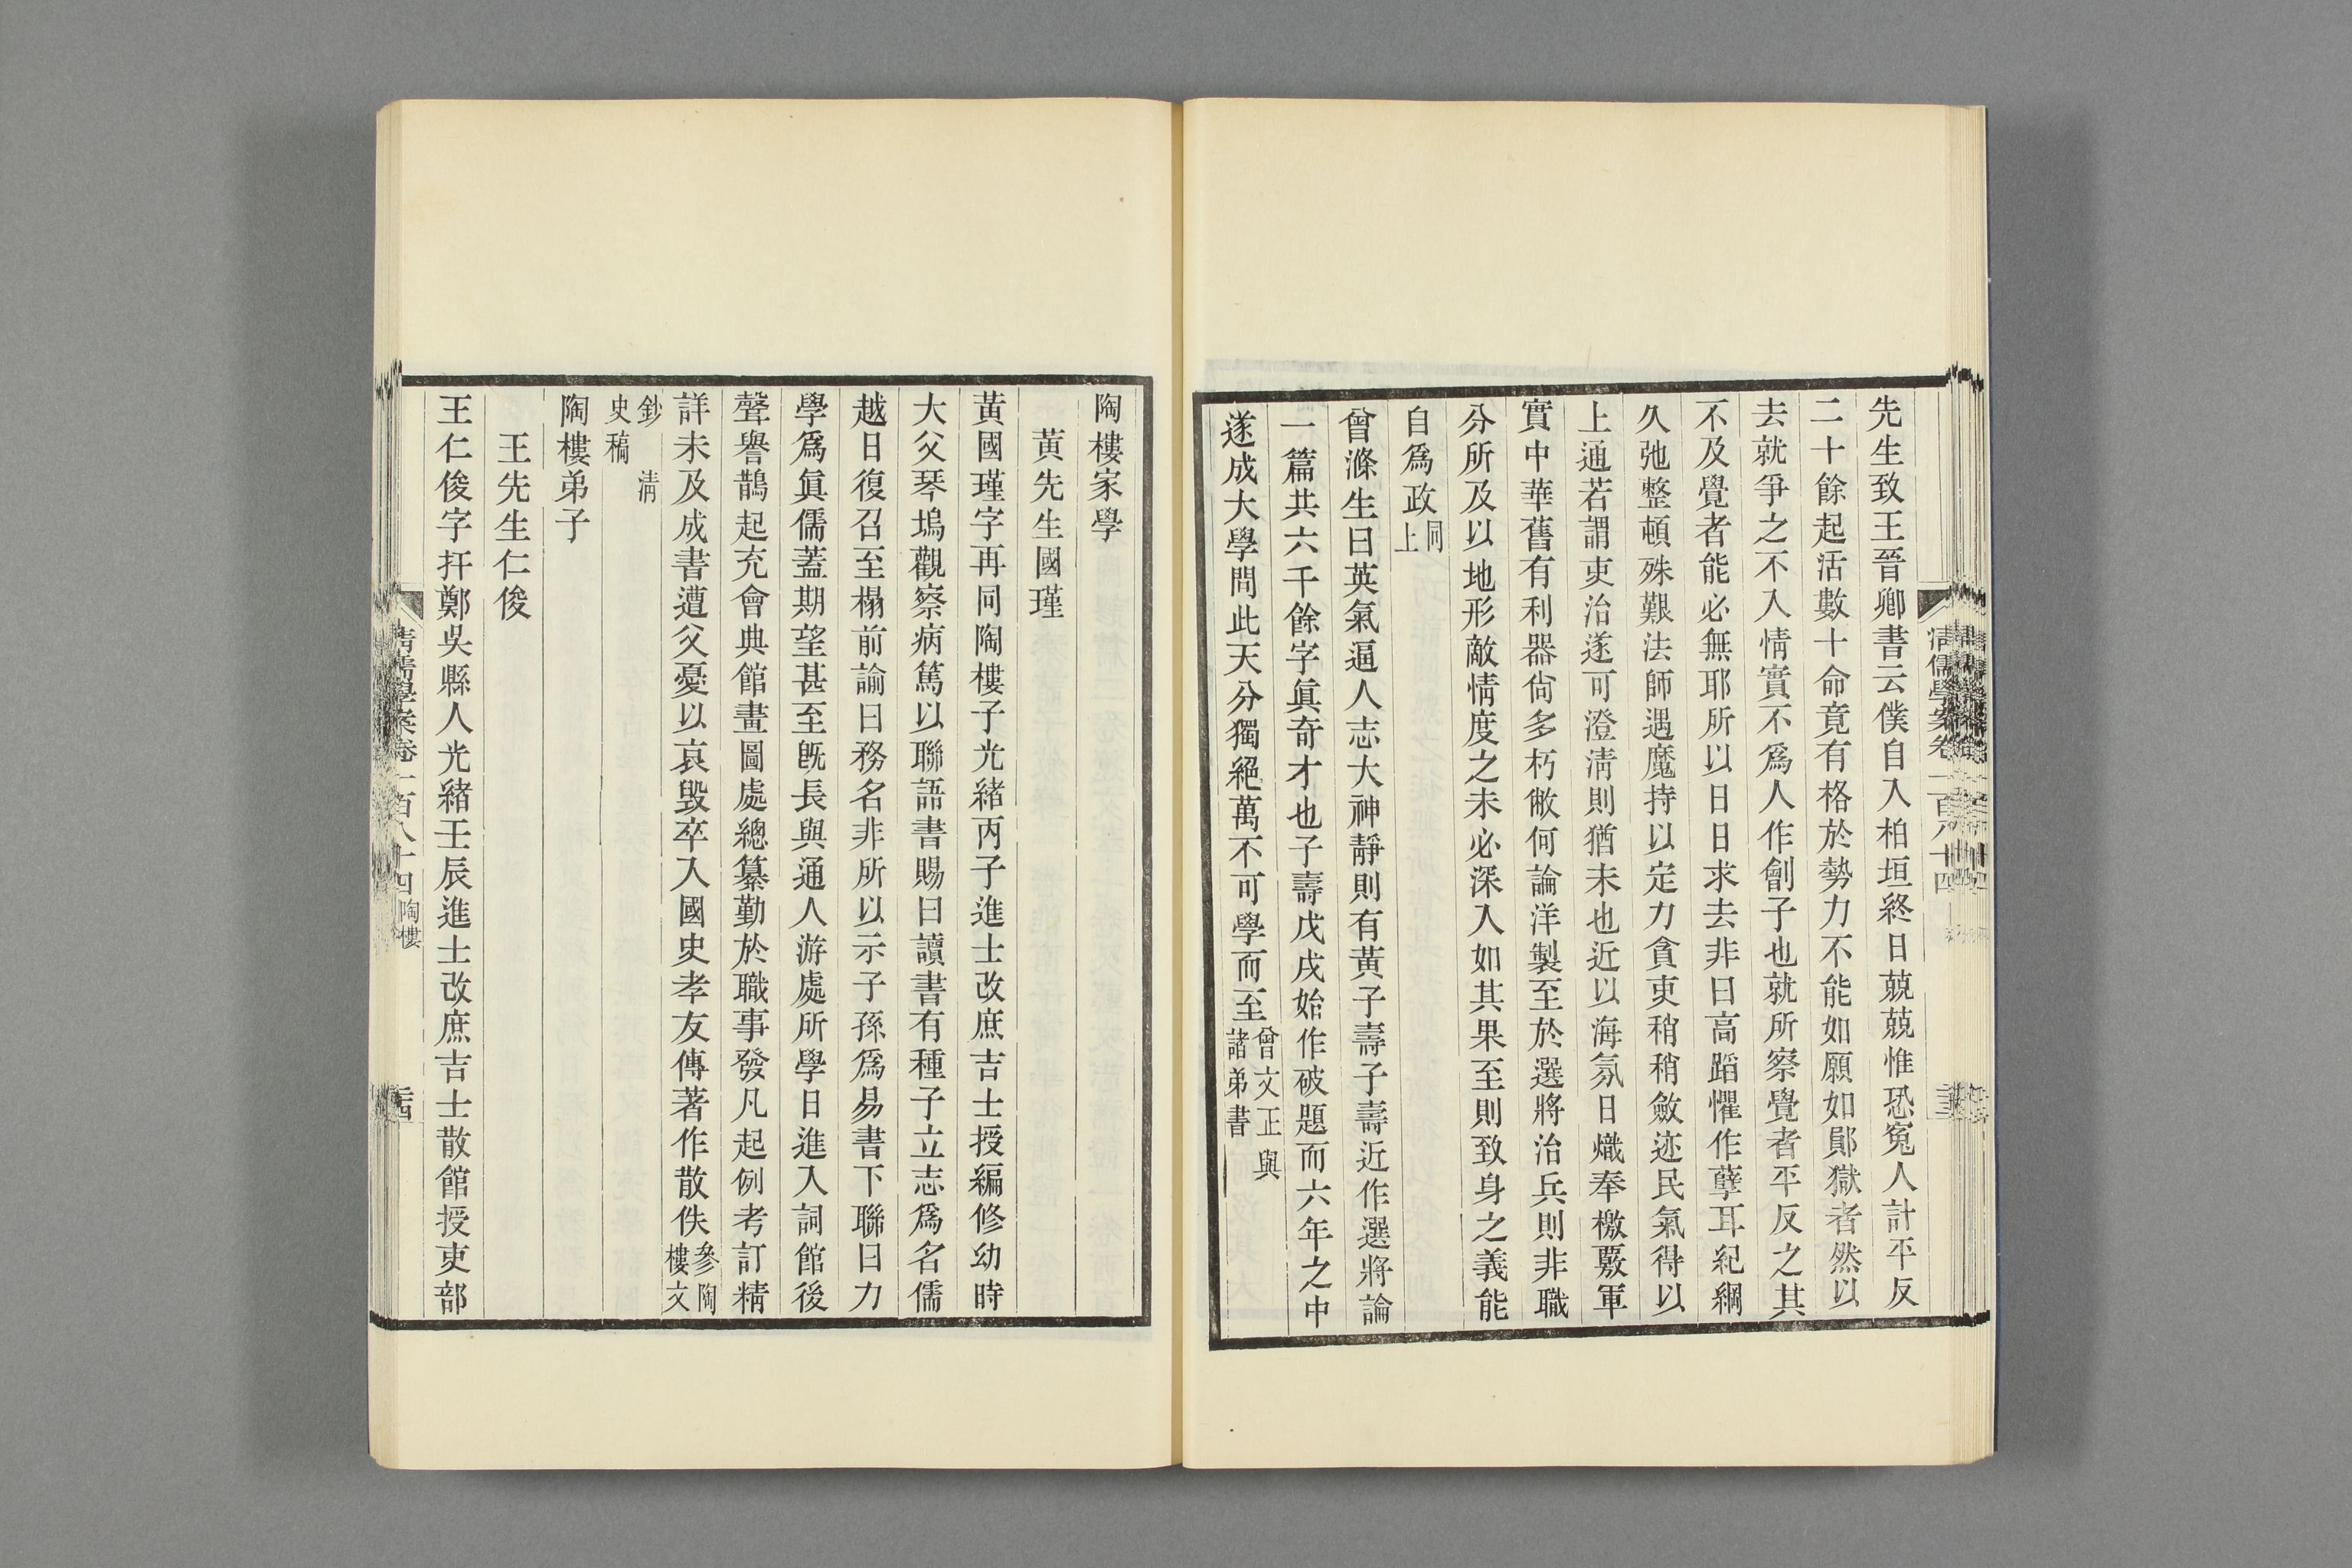 先生致王晉卿書云僕自入柏垣終日兢兢惟恐冤人計平反
二十餘起活數十命竟有格於勢力不能如願如鄖獄者然以
去就爭之不入情實不爲人作劊子也就所察覺者平反之其
不及覺者能必無耶所以日日求去非曰高蹈懼作孽耳紀綱
久弛整頓殊艱法師遇魔持以定力貪吏稍稍斂迹民氣得以
上通若謂吏治遂可澄清則猶未也近以海氛日熾奉檄覈軍
實中華舊有利器尙多朽敝何論洋製至於選將治兵則非職
分所及以地形敵情度之未必深入如其果至則致身之義能
自爲政同上
曾滌生日英氣逼人志大神靜則有黃子壽子壽近作選將論
一篇共六千餘字眞奇才也子壽戊戌始作破題而六年之中
遂成大學問此天分獨絕萬不可學而至曾文正與諸弟書
清儒學案卷一百八十四
陶樓家學
黃先生國瑾
黃國瑾字再同陶樓子光緒丙子進士改庶吉士授編修幼時
大父琴塢觀察病篤以聯語書賜曰讀書有種子立志爲名儒
越日復召至榻前諭曰務名非所以示子孫爲易書下聯曰力
學爲眞儒蓋期望甚至旣長與通人游處所學日進入詞館後
聲譽鵲起充會典館畫圖處總纂勤於職事發凡起例考訂精
詳未及成書遭父憂以哀毀卒入國史孝友傳著作散佚參陶樓文
鈔 清史稿
陶樓弟子
王先生仁俊
王仁俊字扞鄭吳縣人光緒壬辰進士改庶吉士散館授吏部
清儒學案卷一百八十四 陶樓 二十四